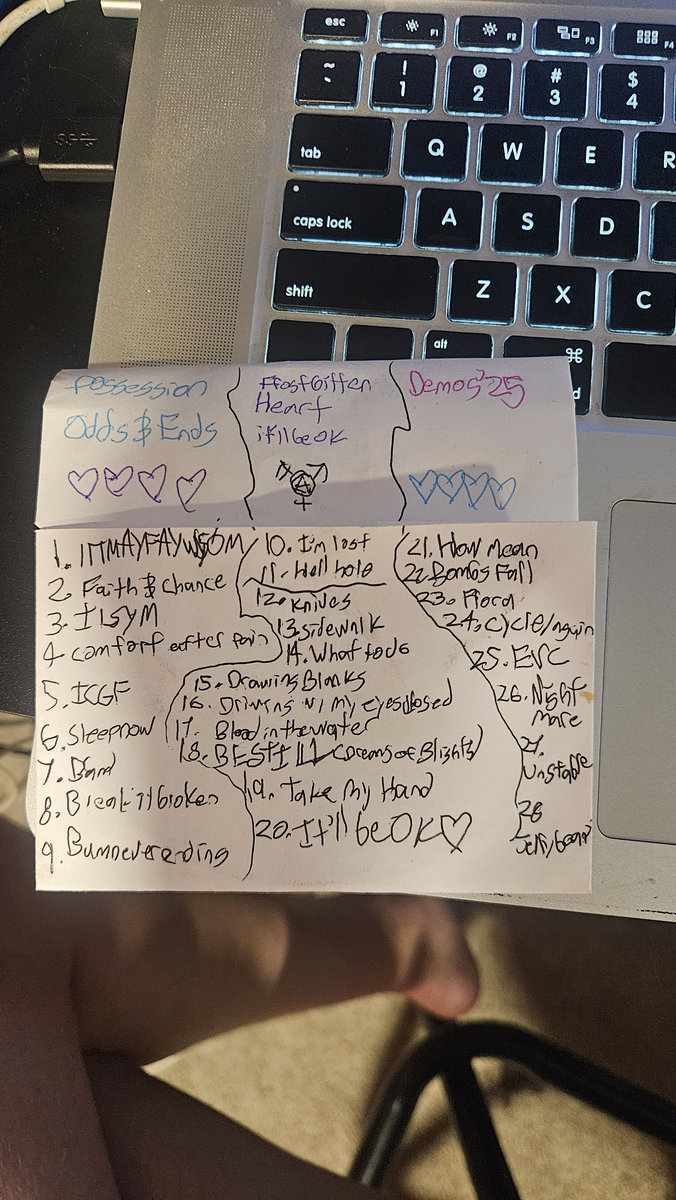 esc
F1
F2
F3
F4
~
`
!
1
@
2
#
3
$
4
tab
Q
W
E
R
caps lock
A
S
D
shift
Z
X
C
alt
⌘
d
Possession
Odds & Ends
Frostbitten
Heart
it'll be ok
Demos '25
2. Faith & Chance
3. ILSYM
4 comfort after pain
5. ICGF
6. Sleepnow
7. Band
8. Break it broken
9.
10. I'm lost
11. Hell hole
12. Knives
13. sidewalk
14. What to do
15. Drawing Blanks
16. Driving W/ my eyes closed
17. Blood in the water
18. BE STILL
19. Take My Hand
20. It'll be OK♡
21. How mean
22. Bombs Fall
23.
24. Cycle/Again
25. EVC
26. Night
mare
27.
Unstable
28